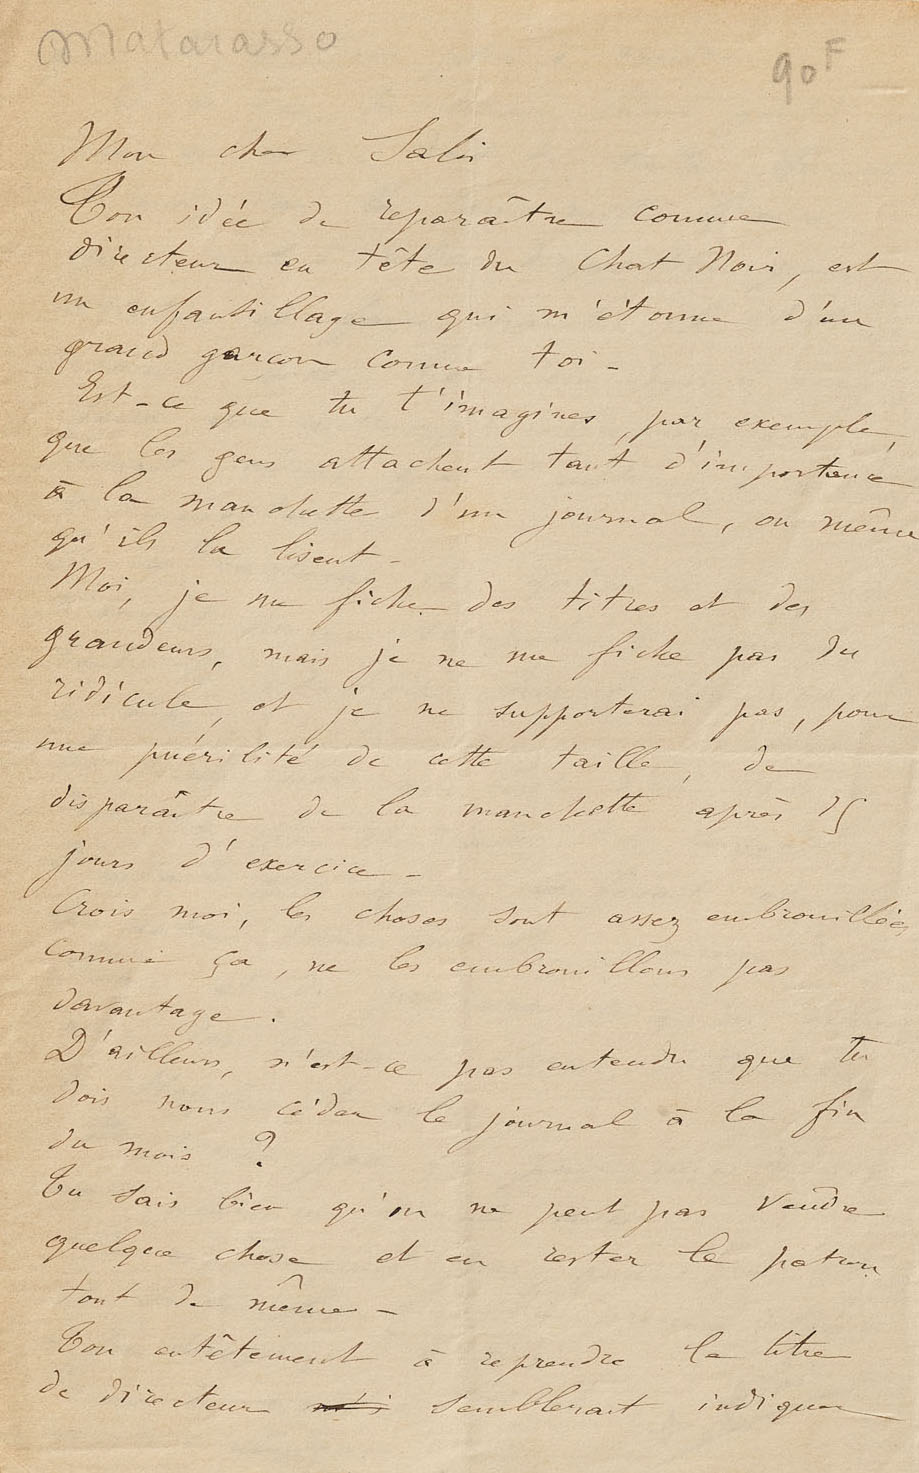 Matarasso
90F
Mon cher Salis
Ton idée de reparaître comme
directeur en tête du Chat Noir, est
un enfantillage qui m'étonne d'un
grand garçon comme toi -
Est-ce que tu t'imagines, par exemple,
que les gens attachent tant d'importance
à la manchette d'un journal, ou même
qu'ils la lisent -
Moi, je me fiche des titres et des
grandeurs, mais je ne me fiche pas du
ridicule, et je ne supporterai pas, pour
une puérilité de cette taille, de
disparaître de la manchette après 15
jours d'exercice -
Crois moi, les choses sont assez embrouillées
comme ça, ne les embrouillons pas
davantage.
D'ailleurs, n'est-ce pas entendu que tu
dois nous céder le journal à la fin
du mois ?
Tu sais bien qu'on ne peut pas vendre
quelque chose et en rester le patron
tout de même -
Ton entêtement à reprendre le titre
de directeur semblerait indiquer